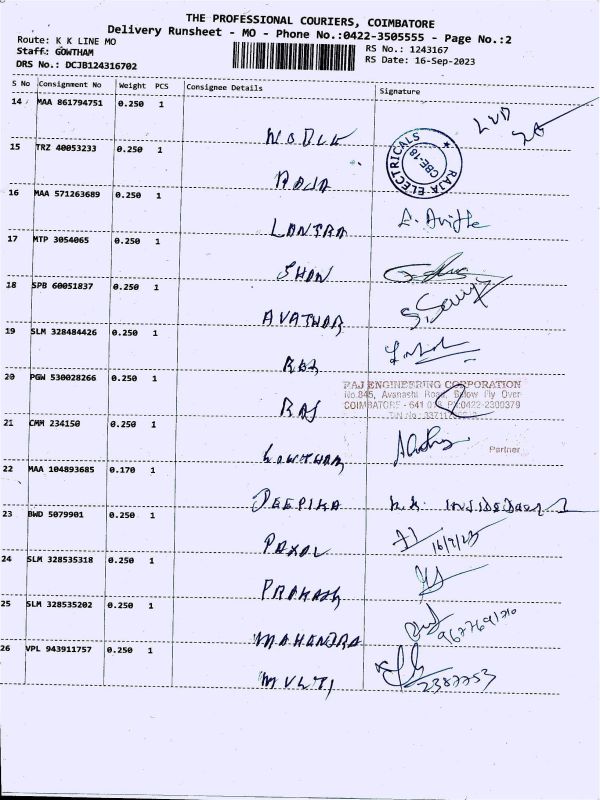 THE PROFESSIONAL COURIERS, COIMBATORE
Delivery Runsheet - MO - Phone No.:0422-3505555 - Page No.:2
Route: K K LINE MO
RS No.: 1243167
Staff: GOWTHAM
RS Date: 16-Sep-2023
DRS No.: DCJB124316702
S No Consignment No Weight PCS Consignee Details Signature
14 MAA 861794751 0.250 1
15 TRZ 40053233 0.250 1 ROJA
RAJA ELECTRICALS CBE-18
16 MAA 571263689 0.250 1
17 MTP 3054065 0.250 1 SHAN
18 SPB 60051837 0.250 1 AVATHAR
19 SLM 328484426 0.250 1
20 PGW 530028266 0.250 1 RAJ
RAJ ENGINEERING CORPORATION
No.845, Avanashi Road, Below Fly Over
COIMBATORE - 641 018 Ph:0422-2300379
Partner
21 CMM 234150 0.250 1 GOWTHAM
22 MAA 104893685 0.170 1 DEEPIKA
23 BWD 5079901 0.250 1
16/9/23
24 SLM 328535318 0.250 1 PRAKASH
25 SLM 328535202 0.250 1 MAHENDRA
26 VPL 943911757 0.250 1 MULTI